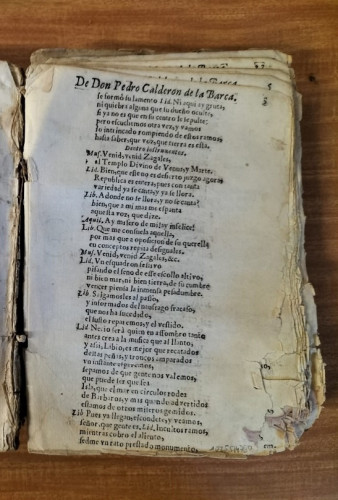 De Don Pedro Calderon de la Barca.
5
se formó su lamento Lid. Ni aqui ay gruta,
ni quiebra alguna que su dueño oculte,
si ya no es que en su centro le sepulte:
pero escuchemos otra vez, y vamos
lo intrincado rompiendo de estos ramos,
hasta saber, que voz, que fuera es esta.
Dentro instrumentos.
Mus. Venid, venid Zagales,
el Templo Divino de Venus, y Marte.
Lid. Bien, que este no es desierto juzgo agora
Republica es entera, pues con tanta
variedad ya se canta, y ya se llora.
Lib. A donde no se llora, y no se canta?
bien, que à mi mas me espanta
aquella voz, que dize.
Ay misero de mi! ay infelice!
Lib. Que me consuela aquella,
por mas que a oposicion de su querella
en conceptos repita desiguales.
Mus. Venid, venid Zagales, &c.
Lid. Vn esquadron festivo
pisando el seno de este escollo altivo,
ni bien mar, ni bien tierra, de su cumbre
vencer piensa la inmensa pesadumbre.
Lib. Salgamosles al passo,
y informados del naufrago fracaso,
que nos ha sucedido,
el susto reparemos, y el vestido.
Lid. No, io serà quien su assombro
antes crea a la musica que al llanto,
y assi, Libio, es mejor que recatados
destas peñas, y troncos amparados
vn instante esperemos,
sepamos de que gente nos valemos,
que puede ser que sea
Isla, que el mar en circulos rodea
de Barbaros, y mas quando advertidos
estamos de otros miseros gemidos.
Lib. Pues vàn llegando, escondete, y veamos,
señor, que gente es. Lid. Incultos ramos,
mientras cobro el aliento,
sedme vn rato prestado monumento,